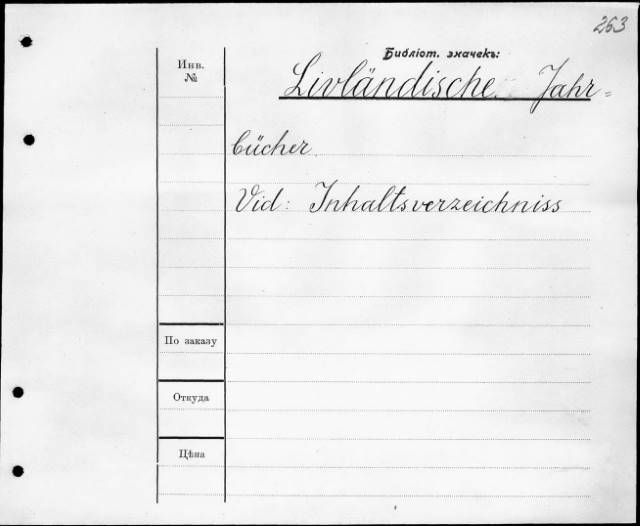 263
Библіот. значекъ:
Инв.
№
Livländische Jahr=
bücher.
Vid: Inhaltsverzeichniss
По заказу
Откуда
Цѣна